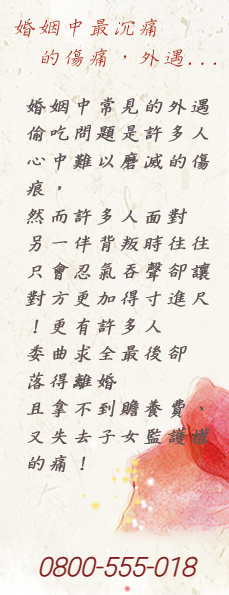 婚姻中最沉痛
的傷痛，外遇...
婚姻中常見的外遇
偷吃問題是許多人
心中難以磨滅的傷
痕，
然而許多人面對
另一伴背叛時往往
只會忍氣吞聲卻讓
對方更加得寸進尺
！更有許多人
委曲求全最後卻
落得離婚
且拿不到贍養費、
又失去子女監護權
的痛！
0800-555-018